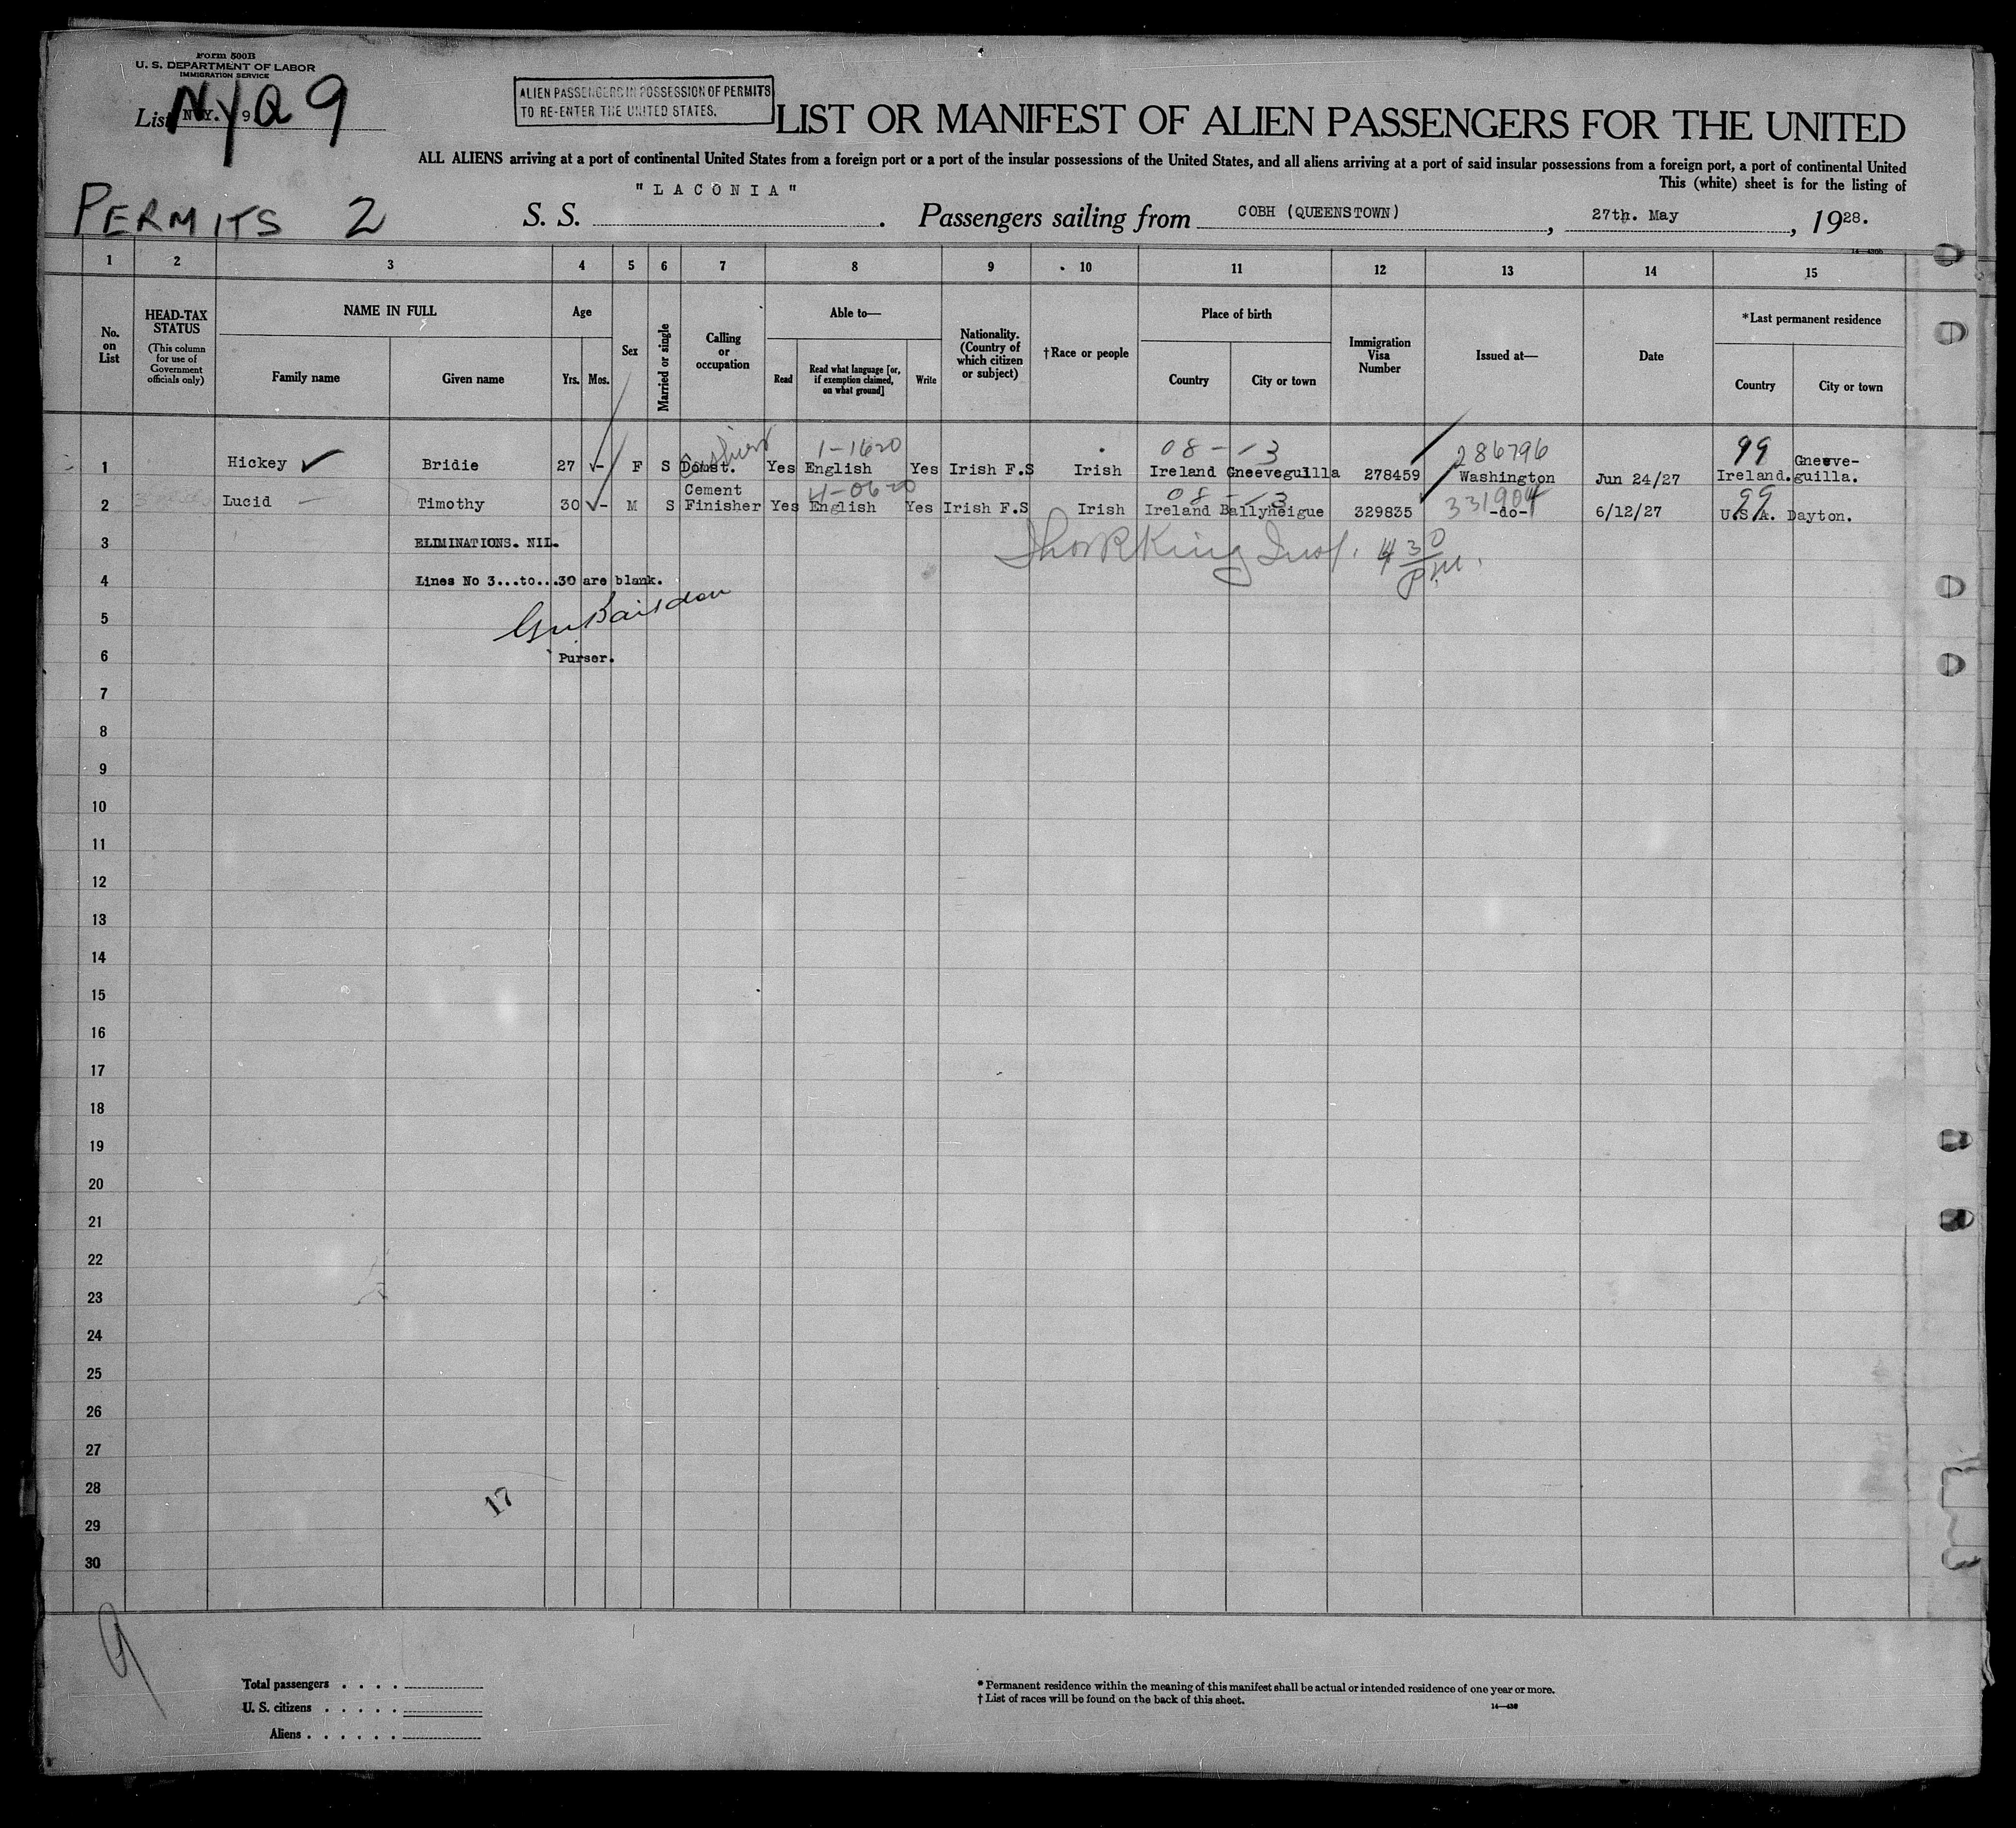 Form 500B
U. S. DEPARTMENT OF LABOR
IMMIGRATION SERVICE
List N.Y. 9
NYQ 9
ALIEN PASSENGERS IN POSSESSION OF PERMITS
TO RE-ENTER THE UNITED STATES.
LIST OR MANIFEST OF ALIEN PASSENGERS FOR THE UNITED
ALL ALIENS arriving at a port of continental United States from a foreign port or a port of the insular possessions of the United States, and all aliens arriving at a port of said insular possessions from a foreign port, a port of continental United
This (white) sheet is for the listing of
PERMITS 2
S. S. "LACONIA". Passengers sailing from COBH (QUEENSTOWN), 27th. May, 1928.
1 2 3 4 5 6 7 8 9 10 11 12 13 14 15
No. on List
HEAD-TAX STATUS
(This column for use of Government officials only)
NAME IN FULL
Family name
Given name
Age
Yrs. Mos.
Sex
Married or single
Calling or occupation
Able to—
Read
Read what language [or, if exemption claimed, on what ground]
Write
Nationality. (Country of which citizen or subject)
†Race or people
Place of birth
Country
City or town
Immigration Visa Number
Issued at—
Date
*Last permanent residence
Country
City or town
1-1620 08 - 13 286796 99
1 Hickey Bridie 27 - F S Domst. Yes English Yes Irish F.S Irish Ireland Gneeveguilla 278459 Washington Jun 24/27 Ireland. Gneeve-guilla.
4-0620 08 - 13 331904 99
2 Lucid Timothy 30 - M S Cement Finisher Yes English Yes Irish F.S Irish Ireland Ballyheigue 329835 -do- 6/12/27 U.S.A. Dayton.
3 ELIMINATIONS. NIL.
King Insp. 4 30 P.M.
4 Lines No 3...to...30 are blank.
5
6 Purser.
7
8
9
10
11
12
13
14
15
16
17
18
19
20
21
22
23
24
25
26
27
28
17
29
30
9
Total passengers . . . .
U. S. citizens . . . . .
Aliens . . . . . .
* Permanent residence within the meaning of this manifest shall be actual or intended residence of one year or more.
† List of races will be found on the back of this sheet.